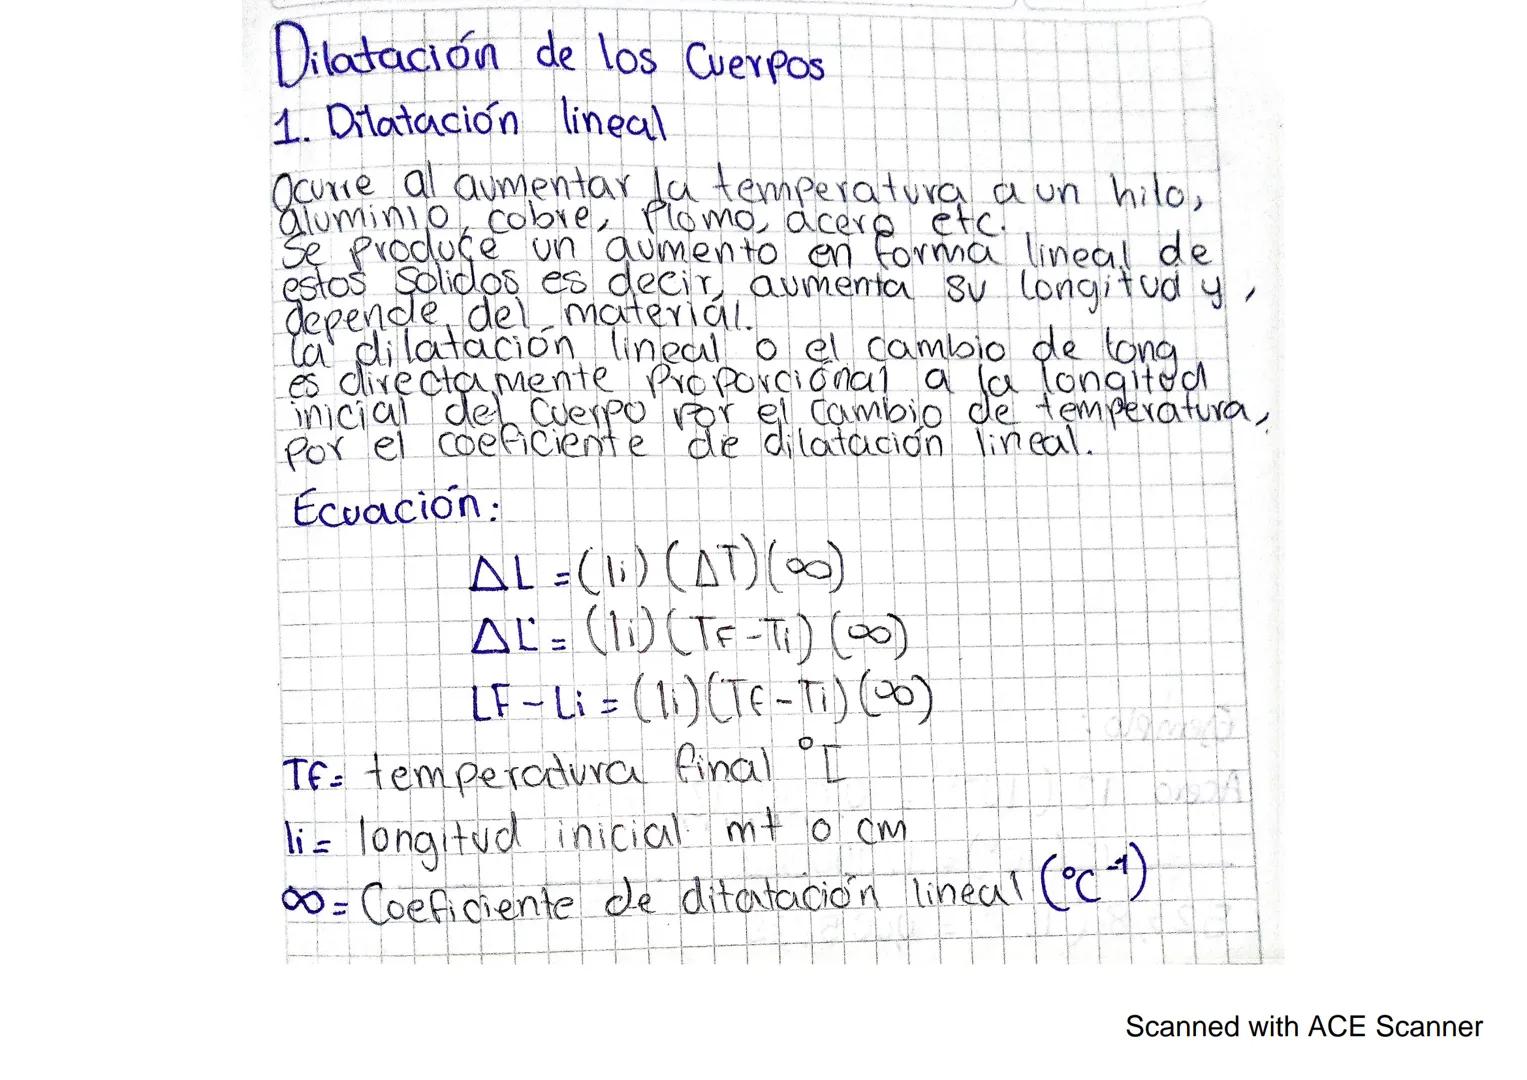 Dilatación de los Cuerpos
1. Dilatación lineal
Ocurre al aumentar la temperatura a un hilo,
aluminio, cobre, plomo, acero etc.
Se produce un aumento en forma lineal de
estos solidos es decir, aumenta su longitud y,
depende del material.
la dilatación lineal o el cambio de long
es directamente proporcional a la longitud
inicial del cuerpo por el cambio de temperatura,
por el coeficiente de dilatación lineal.
Ecuación:
ΔL = (li) (ΔT) (∞)
ΔL = (li) (TF - Ti) (∞)
LF - Li = (li) (TF - Ti) (∞)
TF = temperatura final °C
li = longitud inicial mt o cm
∞ = Coeficiente de ditatación lineal (°C⁻¹)
Scanned with ACE Scanner